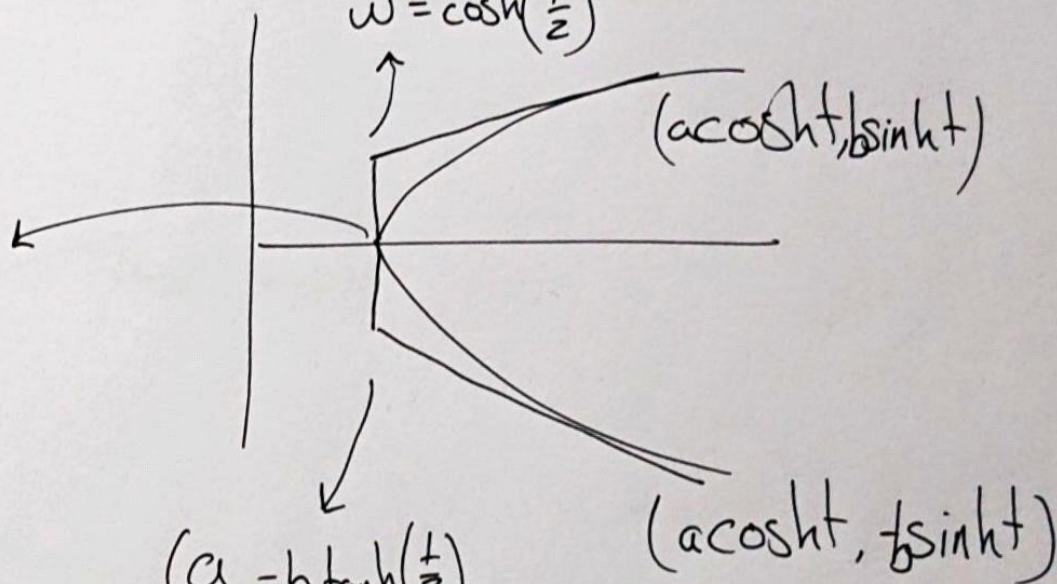 ω = cosh(t/2)
(acosht, bsinht)
(acosht, -bsinht)
(a, -b tanh(t/2)